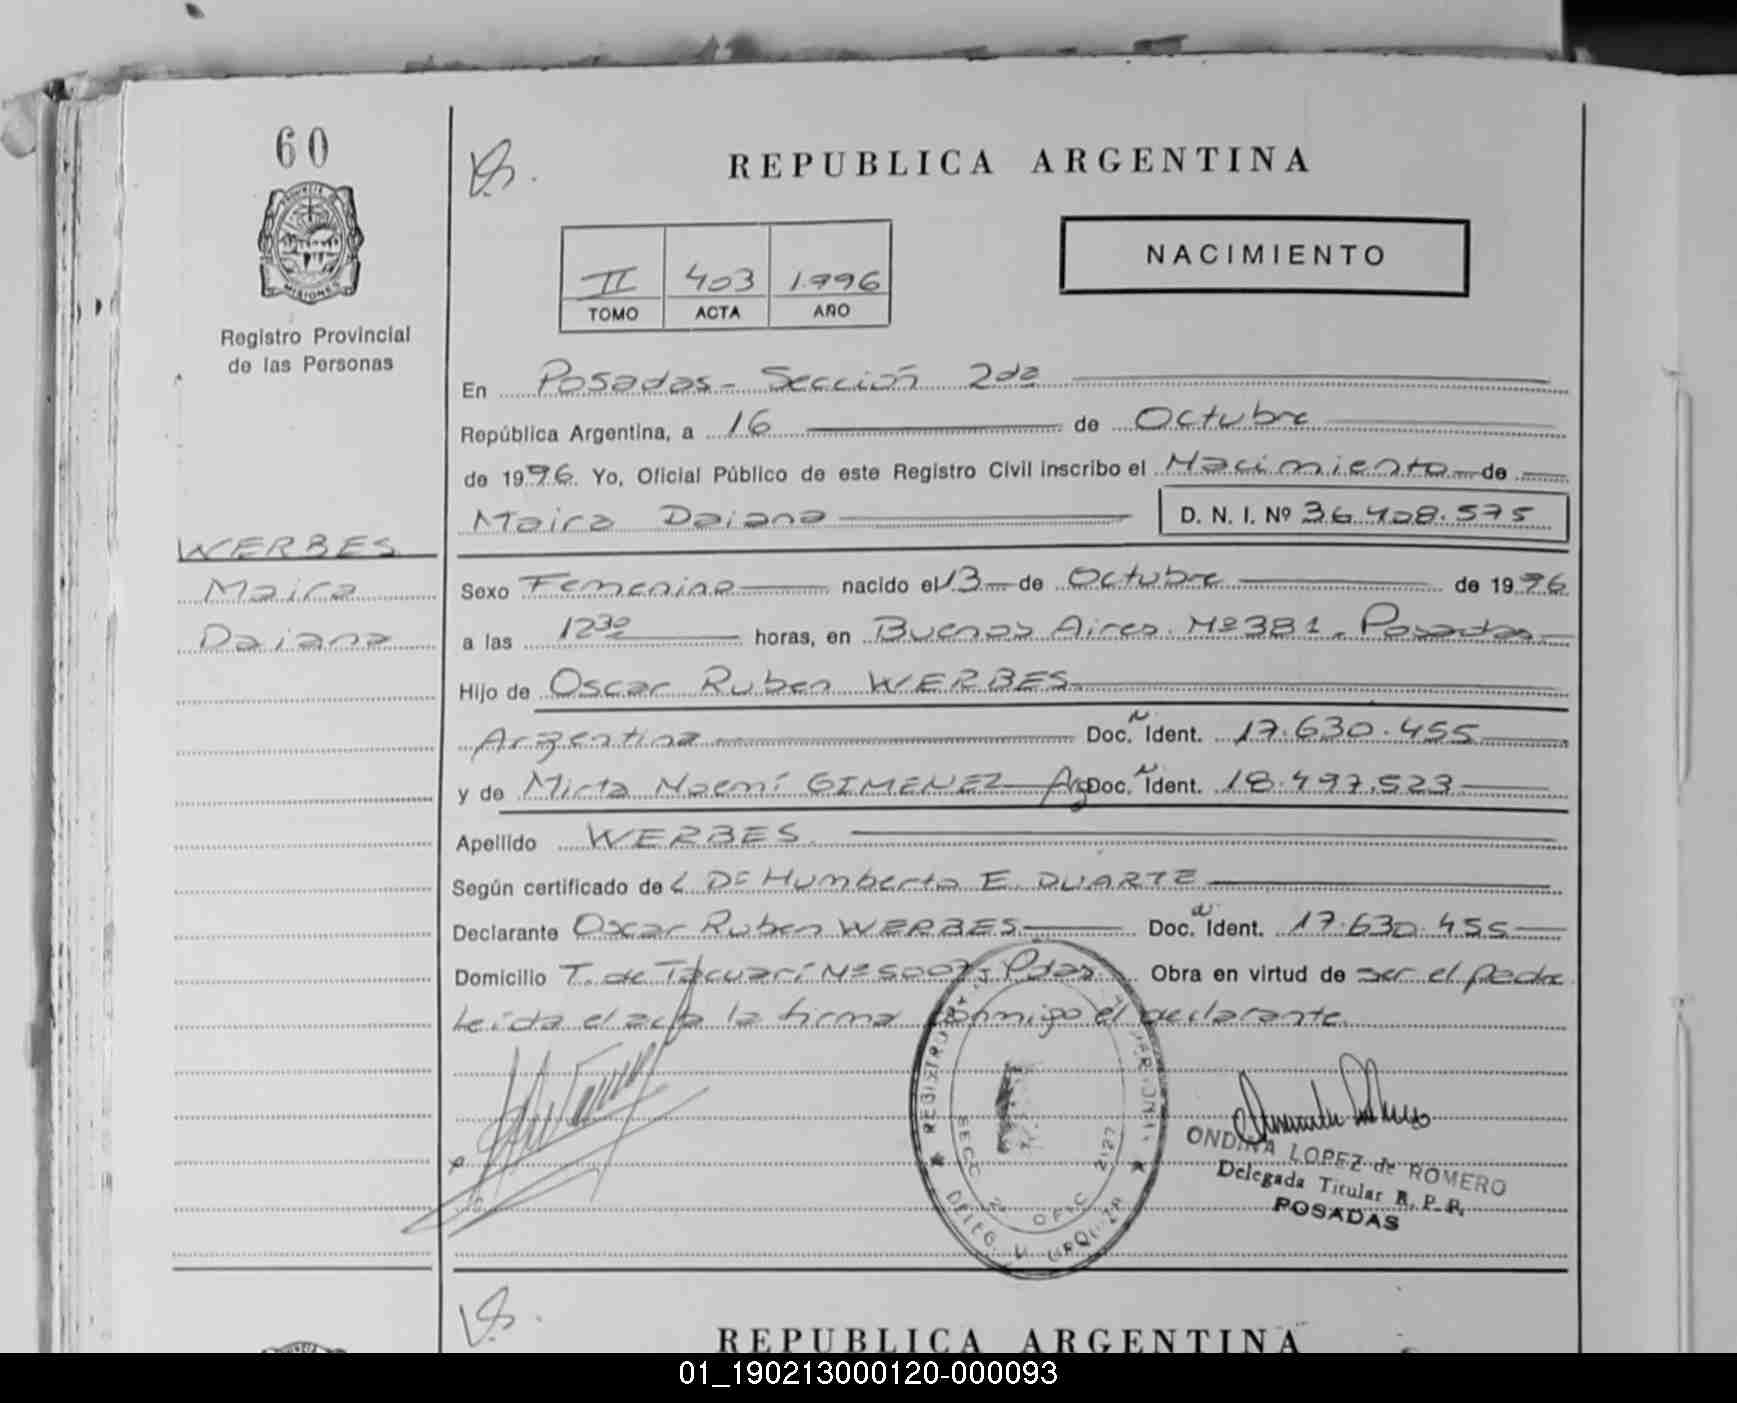 60
REPUBLICA ARGENTINA
PROVINCIA DE
MISIONES
Registro Provincial
de las Personas
NACIMIENTO
II 403 1.996
TOMO ACTA AÑO
En Posadas - Sección 2da
República Argentina, a 16 de Octubre
de 1996. Yo, Oficial Público de este Registro Civil inscribo el Nacimiento de
Maira Daiana D. N. I. Nº 36.408.575
WERBES
Maira
Daiana
Sexo Femenino nacido el 13 de Octubre de 1996
a las 12³⁰ horas, en Buenos Aires Nº 381, Posadas
Hijo de Oscar Ruben WERBES
Argentina Doc. N Ident. 17.630.455
y de Mirta Noemí GIMENEZ Arg Doc. N Ident. 18.497.523
Apellido WERBES
Según certificado de L Dr Humberto E. DUARTE
Declarante Oscar Ruben WERBES Doc. N Ident. 17.630.455
Domicilio T. de Tacuarí Nº 5007, Pdas. Obra en virtud de ser el padre
Leída el acta la firma conmigo el declarante.
REGISTRO
SECC 2 OFIC 2127
DELEG. V URQUIZA
ONDINA LOPEZ de ROMERO
Delegada Titular R. P. P.
POSADAS
REPUBLICA ARGENTINA
01_190213000120-000093